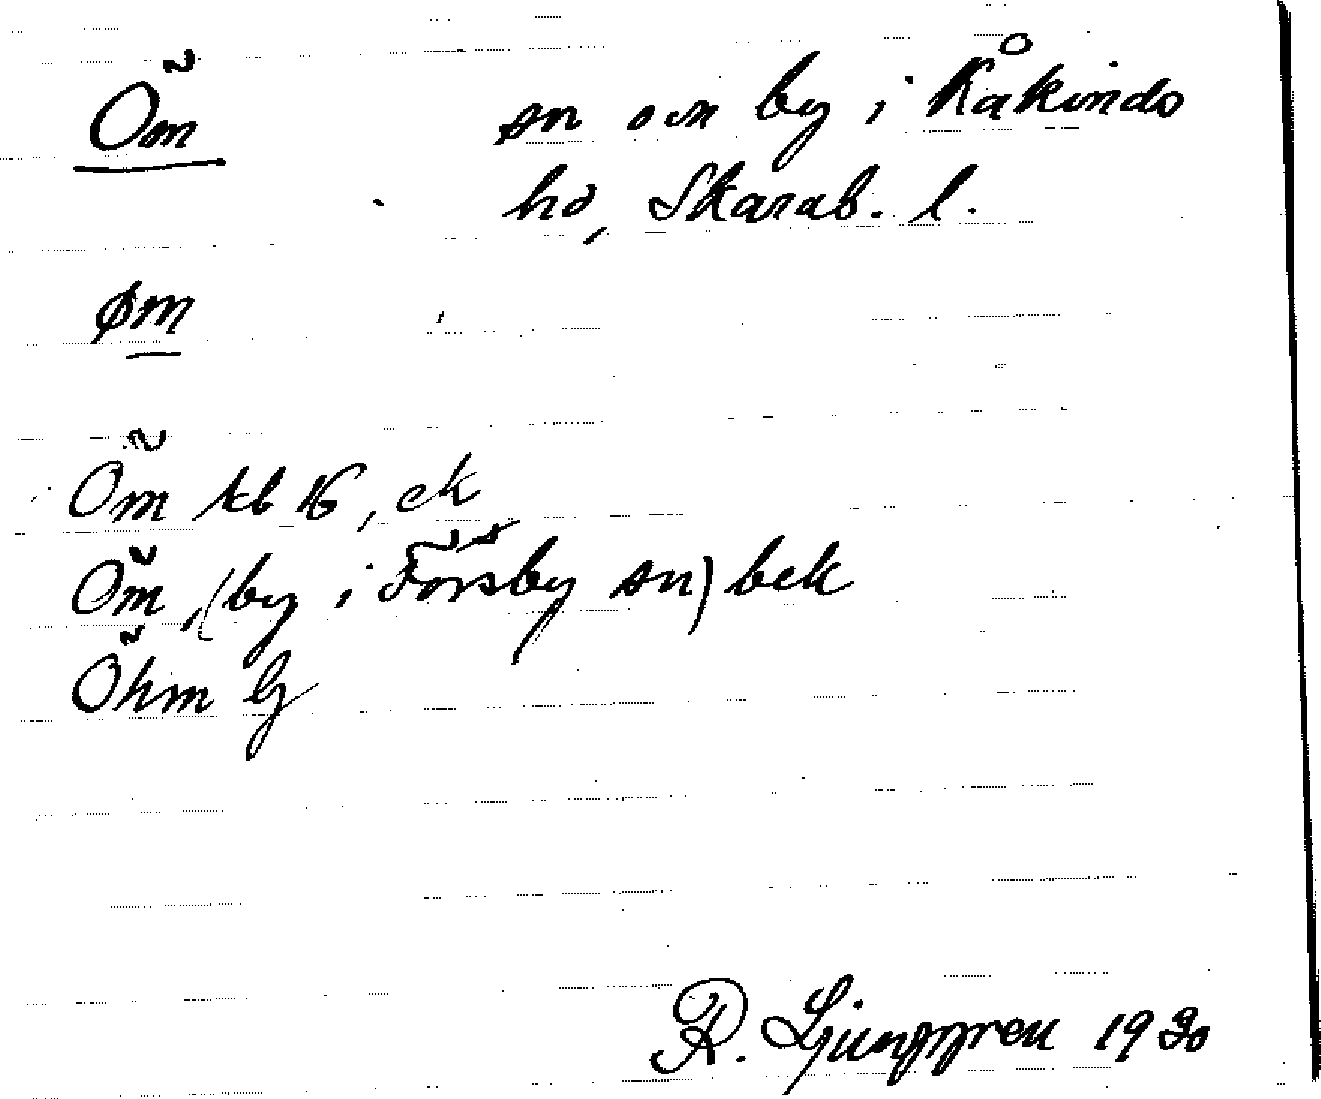 Öm sn o en by i Kåkinds
hd, Skarab. l.
øm
Öm kb 16, ek
Öm, (by i Forsby sn) bek
Öhm G
R. Ljunggren 1930